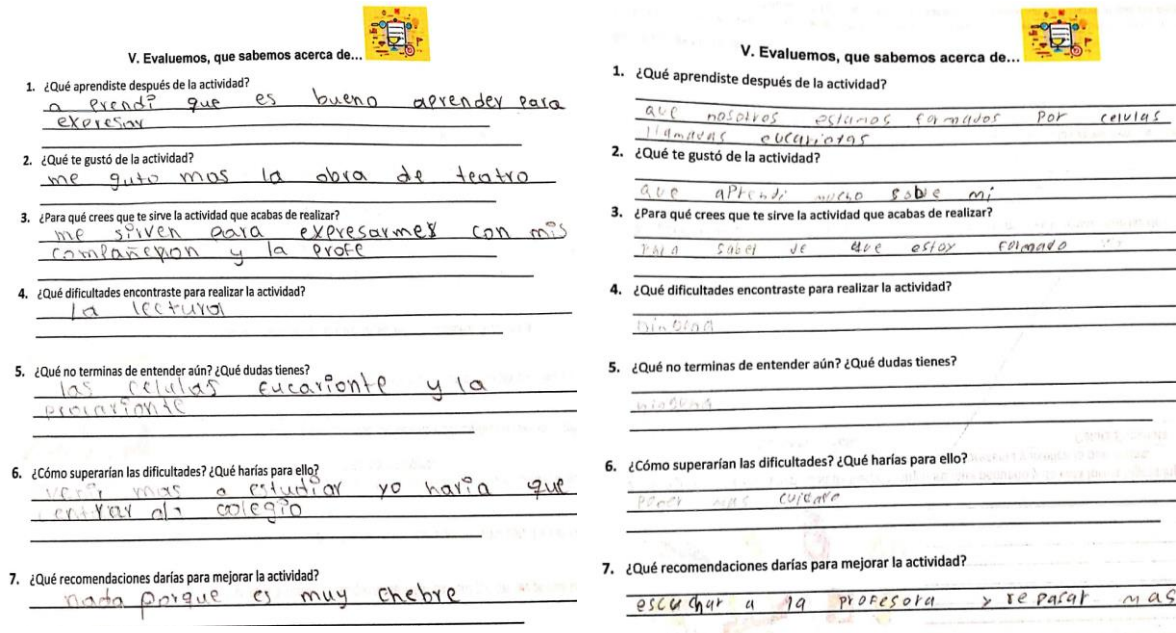 V. Evaluemos, que sabemos acerca de...
1. ¿Qué aprendiste después de la actividad?
a prendi que es bueno aprender para
expresar
2. ¿Qué te gustó de la actividad?
me guto mas la obra de teatro
3. ¿Para qué crees que te sirve la actividad que acabas de realizar?
me sirven para expresarmes con mis
compañeron y la profe
4. ¿Qué dificultades encontraste para realizar la actividad?
la lectura
5. ¿Qué no terminas de entender aún? ¿Qué dudas tienes?
las celulas eucarionte y la
procarionte
6. ¿Cómo superarían las dificultades? ¿Qué harías para ello?
mas a estudiar yo haria que
entrar al colegio
7. ¿Qué recomendaciones darías para mejorar la actividad?
nada porque es muy chebre
V. Evaluemos, que sabemos acerca de...
1. ¿Qué aprendiste después de la actividad?
que nosotros estamos formados por celulas
llamadas eucariotas
2. ¿Qué te gustó de la actividad?
que aprendi mucho sobre mi
3. ¿Para qué crees que te sirve la actividad que acabas de realizar?
para saber de que estoy formado
4. ¿Qué dificultades encontraste para realizar la actividad?
ninguna
5. ¿Qué no terminas de entender aún? ¿Qué dudas tienes?
ninguna
6. ¿Cómo superarían las dificultades? ¿Qué harías para ello?
poner mas cuidado
7. ¿Qué recomendaciones darías para mejorar la actividad?
escuchar a la profesora y repasar mas